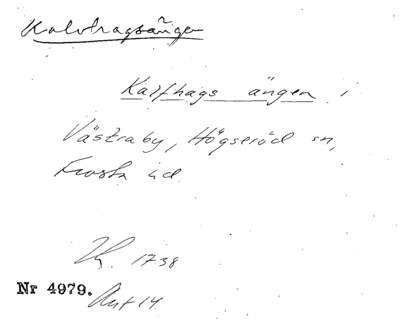 Kalvhagsängen
Kalfhags ängen i
Västraby, Högseröd sn,
Frosta hd
1738
Nr 4979. Ant 14